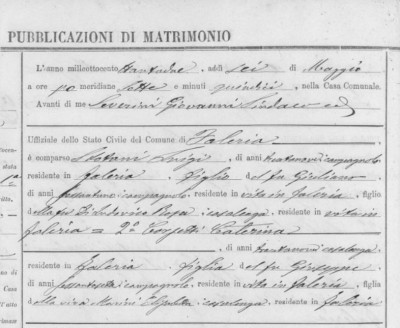 PUBBLICAZIONI DI MATRIMONIO
L'anno milleottocento trentadue, addì sei di Maggio
a ore po meridiane sette e minuti quindici, nella Casa Comunale.
Avanti di me Severini Giovanni Sindaco ed
Uffiziale dello Stato Civile del Comune di Faleria
è comparso Stefani Luigi di anni trentanove campagnolo
residente in Faleria figlio del fu Giuliano
di anni campagnolo residente in vita in Faleria, figlio
della fu Rosa casalenga residente in vita in
Faleria = 2a Caterina
, di anni trentanove casalenga
residente in Faleria figlia del fu Giuseppe
di anni campagnolo residente in vita in Faleria, figlia
della viva Marini Elisabetta casalenga, residente in Faleria